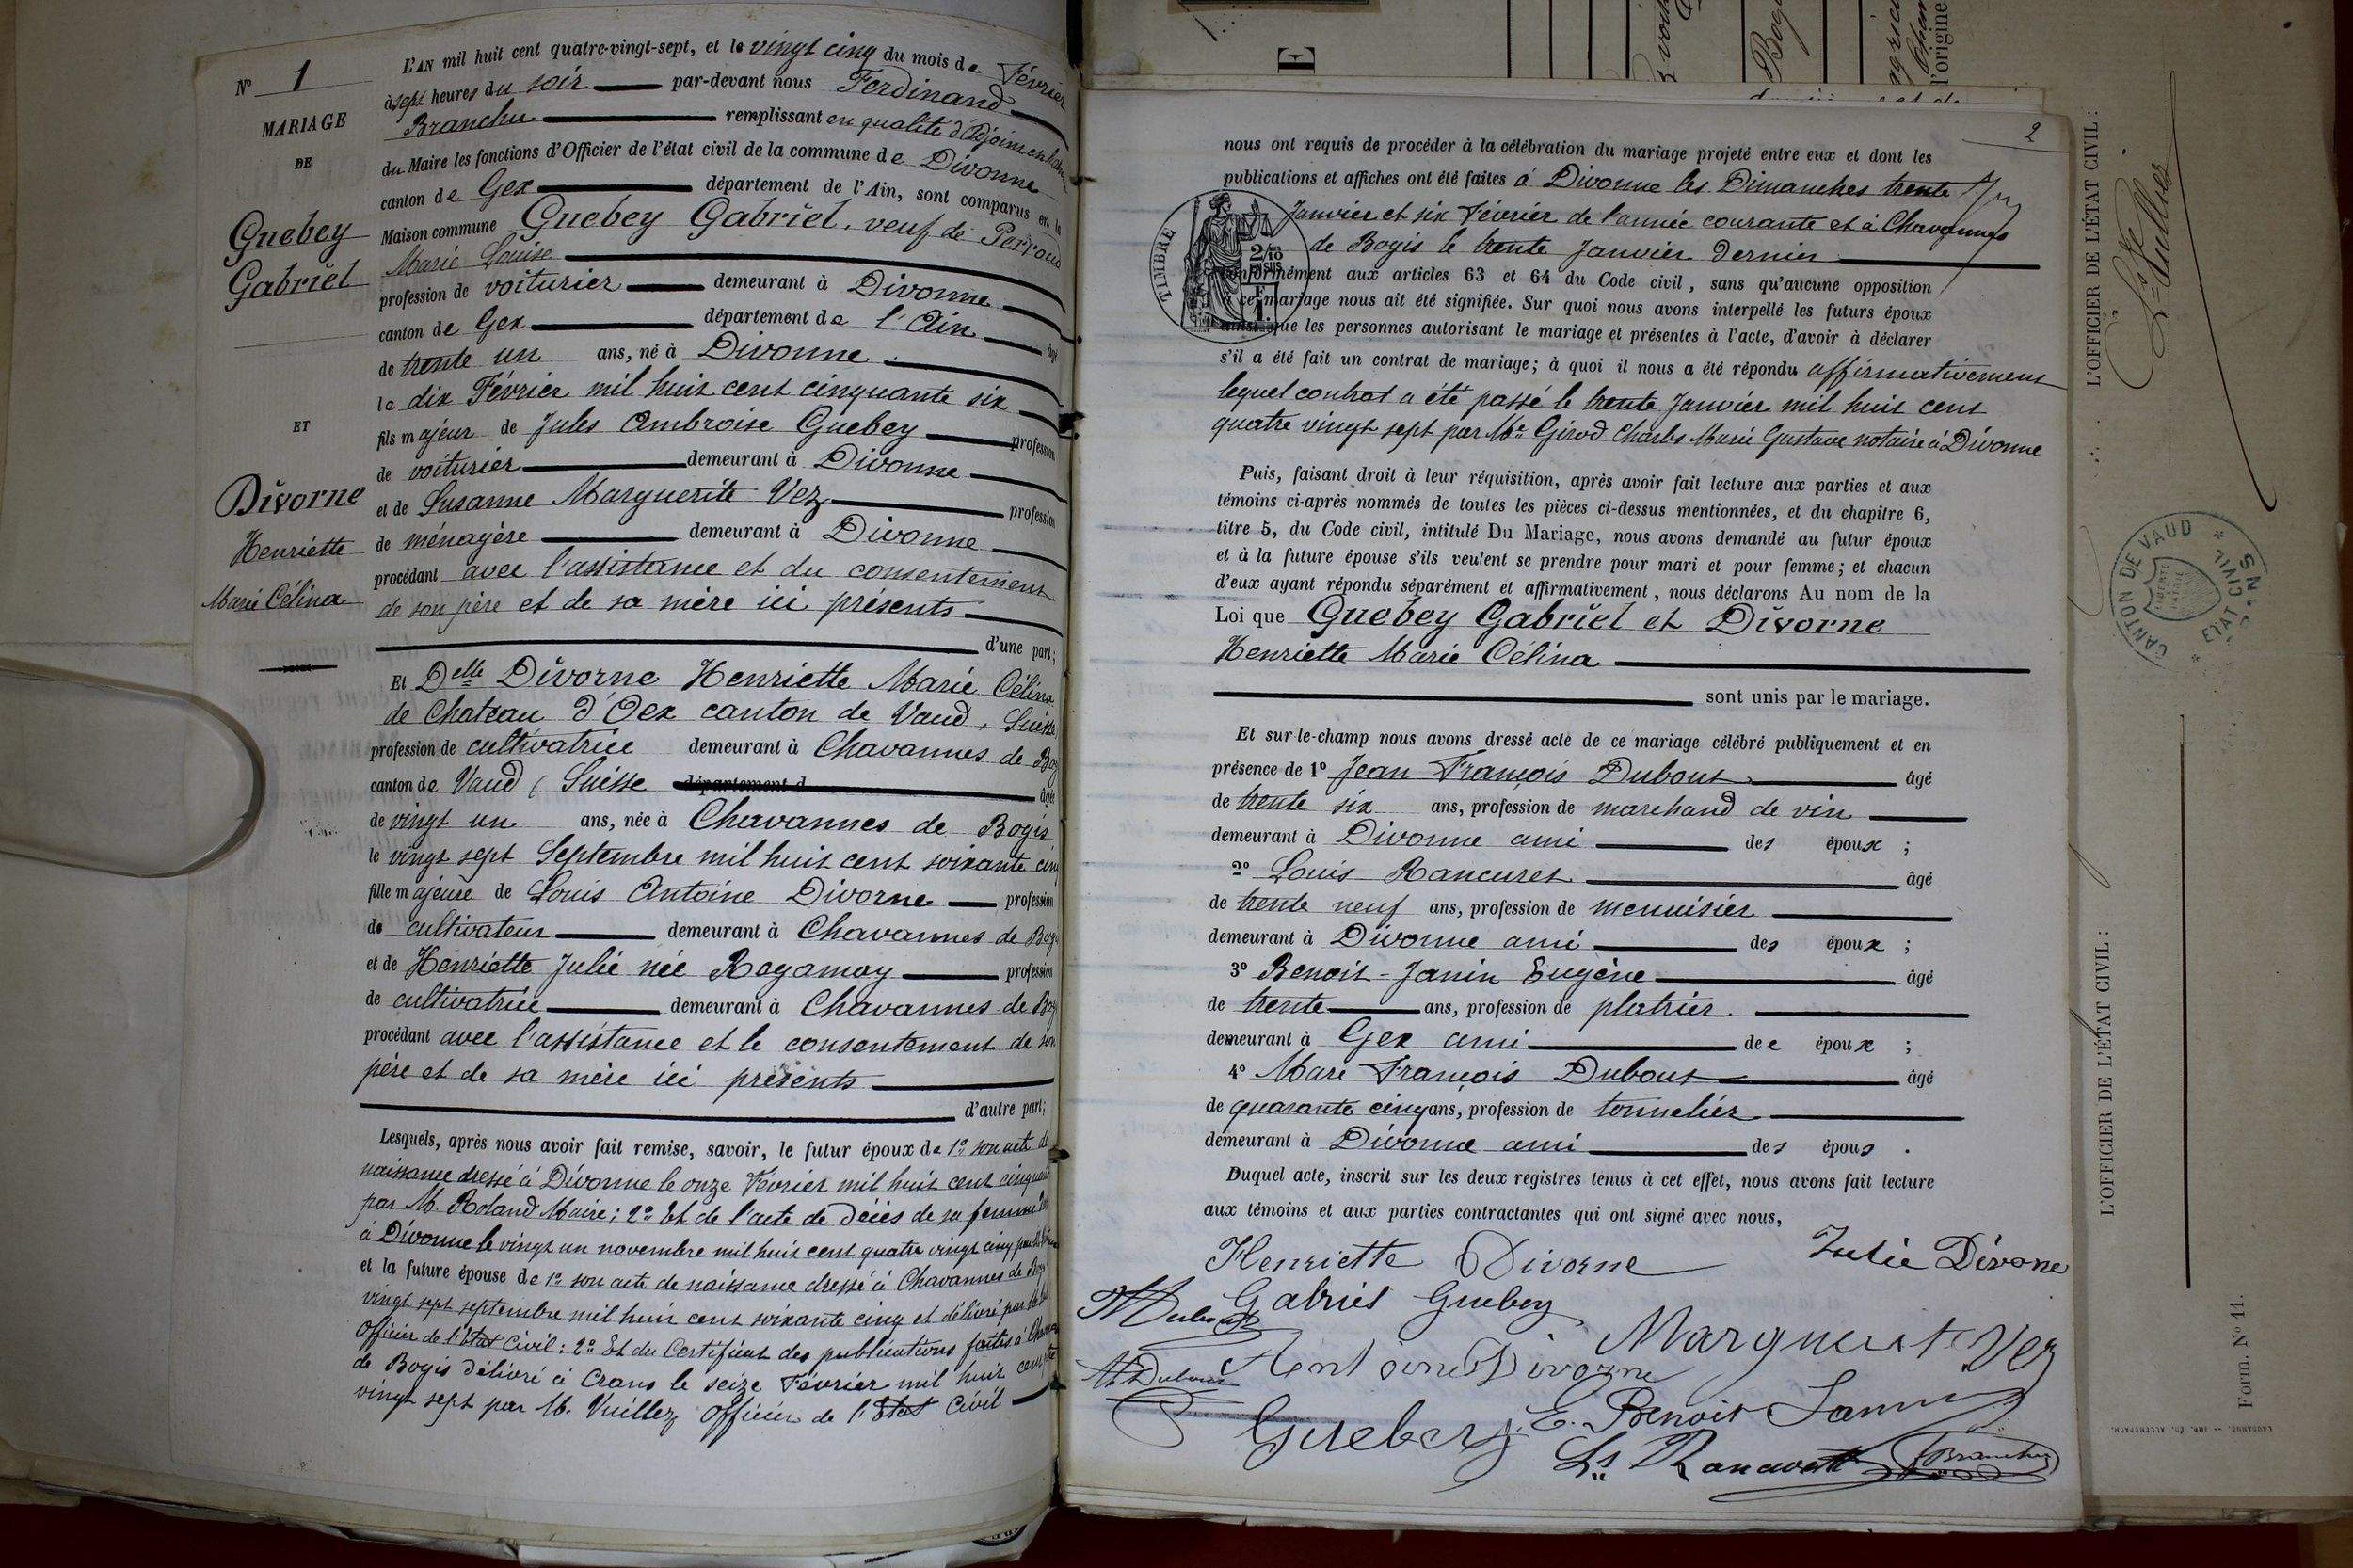 N° 1
MARIAGE
DE
Guebey
Gabriel
ET
Divorne
Henriette
Marie Célina
L'AN mil huit cent quatre-vingt-sept, et le vingt cinq du mois de Février
à sept heures du soir par-devant nous Ferdinand
Branchu remplissant en qualité d'Adjoint
du Maire les fonctions d'Officier de l'état civil de la commune de Divonne
canton de Gex département de l'Ain, sont comparus en la
Maison commune Guebey Gabriel, veuf de Perroud
Marie Louise
profession de voiturier demeurant à Divonne
canton de Gex département de l'Ain âgé
de trente un ans, né à Divonne
le dix Février mil huit cent cinquante six
fils majeur de Jules Ambroise Guebey profession
de voiturier demeurant à Divonne
et de Susanne Marguerite Vez profession
de ménagère demeurant à Divonne
procédant avec l'assistance et du consentement
de son père et de sa mère ici présents
d'une part;
Et Delle Divorne Henriette Marie Célina
de Chateau d'Oex canton de Vaud, Suisse
profession de cultivatrice demeurant à Chavannes de Bog
canton de Vaud (Suisse département d âgée
de vingt un ans, née à Chavannes de Bogis
le vingt sept Septembre mil huit cent soixante cinq
fille majeure de Louis Antoine Divorne profession
de cultivateur demeurant à Chavannes de Bog
et de Henriette Julie née Rogamey profession
de cultivatrice demeurant à Chavannes de Bog
procédant avec l'assistance et le consentement de son
père et de sa mère ici présents
d'autre part;
Lesquels, après nous avoir fait remise, savoir, le futur époux de 1° son acte de
naissance dressé à Divonne le onze Février mil huit cent cinquante
par M. Roland Maire; 2° Et de l'acte de décès de sa femme
à Divonne le vingt un novembre mil huit cent quatre vingt cinq
et la future épouse de 1° son acte de naissance dressé à Chavannes de Bog
vingt sept septembre mil huit cent soixante cinq et délivré par
Officier de l'Etat Civil: 2° Et du Certificat des publications faites à
de Bogis délivré à Crans le seize Février mil huit cent
vingt sept par M. Vuillez Officier de l'Etat Civil
2
nous ont requis de procéder à la célébration du mariage projeté entre eux et dont les
publications et affiches ont été faites à Divonne les Dimanches trente
Janvier et six Février de l'année courante et à Chavannes
de Bogis le trente Janvier dernier
TIMBRE
2/10
EN SUS
conformément aux articles 63 et 64 du Code civil, sans qu'aucune opposition
à ce mariage nous ait été signifiée. Sur quoi nous avons interpellé les futurs époux
ainsi que les personnes autorisant le mariage et présentes à l'acte, d'avoir à déclarer
s'il a été fait un contrat de mariage; à quoi il nous a été répondu affirmativement
lequel contrat a été passé le trente Janvier mil huit cent
quatre vingt sept par Me Girod Charles Marie Gustave notaire à Divonne
Puis, faisant droit à leur réquisition, après avoir fait lecture aux parties et aux
témoins ci-après nommés de toutes les pièces ci-dessus mentionnées, et du chapitre 6,
titre 5, du Code civil, intitulé Du Mariage, nous avons demandé au futur époux
et à la future épouse s'ils veulent se prendre pour mari et pour femme; et chacun
d'eux ayant répondu séparément et affirmativement, nous déclarons Au nom de la
Loi que Guebey Gabriel et Divorne
Henriette Marie Célina
sont unis par le mariage.
Et sur-le-champ nous avons dressé acte de ce mariage célébré publiquement et en
présence de 1° Jean François Dubout âgé
de trente six ans, profession de marchand de vin
demeurant à Divonne ami des époux ;
2° Louis Rancuret âgé
de trente neuf ans, profession de menuisier
demeurant à Divonne ami des époux ;
3° Benoit-Janin Eugène âgé
de trente ans, profession de platrier
demeurant à Gex ami des époux ;
4° Marc François Dubout âgé
de quarante cinq ans, profession de tonnelier
demeurant à Divonne ami des époux .
Duquel acte, inscrit sur les deux registres tenus à cet effet, nous avons fait lecture
aux témoins et aux parties contractantes qui ont signé avec nous,
Henriette Divorne
Julie Divorne
Gabriel Guebey
Marguerite Vez
Antoine Divorne
Guebey
E. Benoit Janin
Branchu
L'OFFICIER DE L'ÉTAT CIVIL :
CANTON DE VAUD
ETAT CIVIL
L'OFFICIER DE L'ÉTAT CIVIL :
Form. N° 11.
l'origine